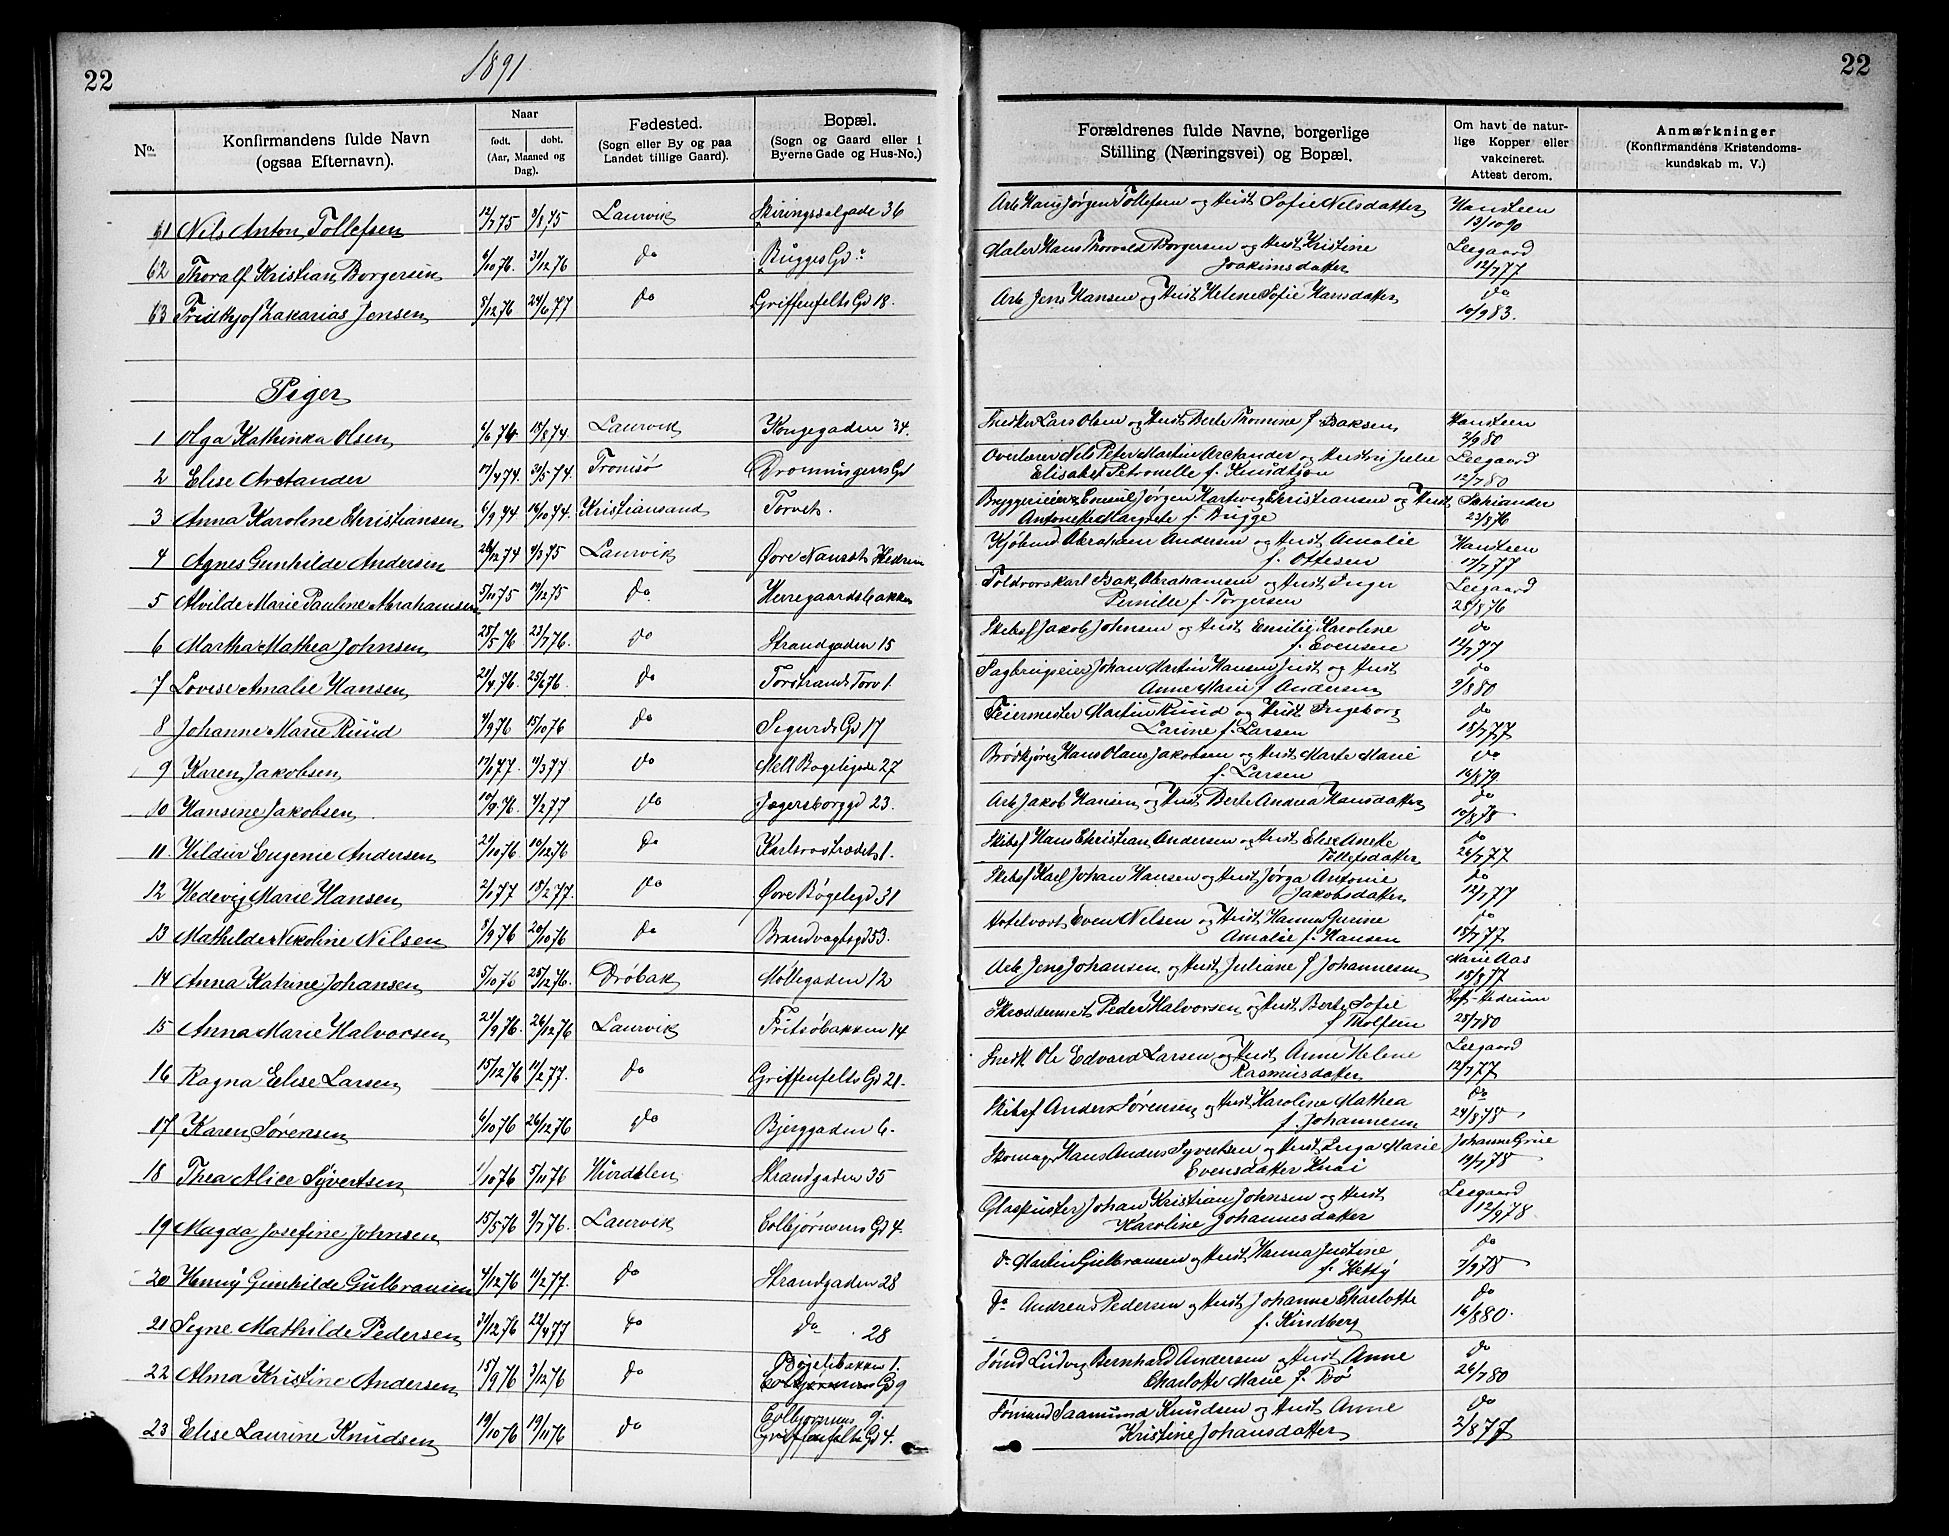 22
1891
22
No.
Konfirmandens fulde Navn
(ogsaa Efternavn).
Naar
født. døbt.
(Aar, Maaned og
Dag).
Fødested.
(Sogn eller By og paa
Landet tillige Gaard).
Bopæl.
(Sogn og Gaard eller i
Byerne Gade og Hus-No.)
Forældrenes fulde Navne, borgerlige
Stilling (Næringsvei) og Bopæl.
Om havt de natur-
lige Kopper eller
vakcineret.
Attest derom.
Anmærkninger
(Konfirmandens Kristendoms-
kundskab m. V.)
61 Nils Anton Tollefsen 12/7 75 3/8 75 Laurvik Skiringssalgade 36 Arb Hans Jørgen Tollefsen og Hust Sofie Nilsdatter Hansteen
13/10 90
62 Thoralf Kristian Borgersen 6/10 76. 31/12 76 do Bugges Gd Maler Hans Thorvald Borgersen og Hust Kristine Leegaard
Joakimsdatter 12/7 77
63 Fridthjof Zakarias Jensen 8/12 76 24/6 77 do Griffenfelts Gd 18. Arb Jens Hansen og Hust Helene Sofie Hansdatter do
10/9 83.
Piger
1 Olga Kathinka Olsen 6/6 74 15/8 74. Laurvik Kongegaden 34. Snedker Lars Olsen og Hust Berte Thomine f. Isaksen Hansteen
2/9 80
2 Elise Arctander 17/4 74. 31/5 74. Tromsø Dronningens Gd Overlærer Nils Peter Martin Arctander og Hustri Julie Leegaard
Elisabet Petronelle f. Knudtzon 12/7 80
3 Anna Karoline Christiansen 6/9 74 14/10 74. Kristiansand Torvet. Bryggerieier & Consul Jørgen Hartwig Christiansen og Hust
Antonette Margrete f. Brigge 23/8 76
4 Agnes Gunhilde Andersen 26/12 74 4/3 75 Laurvik Øvre Nanset Hedrum Kjøbmd Abraham Andersen og Hust Amalie Hansteen
f. Ottesen 17/7 77
5 Alvilde Marie Pauline Abrahamsen 5/10 75 19/12 75 do Herregaardsbakken Toldvorskarl Isak Abrahamsen og Hust Inger Leegaard
Pernille f. Torgersen 25/8 76
6 Martha Mathea Johnsen 28/5 76 23/7 76. do Strandgaden 15 Skibsf Jakob Johnsen og Hust Emilie Karoline do
f. Evensen 12/7 77
7 Lovise Amalie Hansen 20/4 76. 25/6 76. do Torstrands Torv 1. Sagbrugseier Johan Martin Hansen Just og Hust do
Anne Marie f Andersen 9/8 80
8 Johanne Marie Ruud 4/9 76 15/10 76 do Sigurds Gd 17 Feiermester Martin Ruud og Hust Ingeborg do
Larine f. Larsen 18/7 77
9 Karen Jakobsen 17/1 77. 11/3 77 do Mell Bøgeligade 27 Brødkjører Hans Olaus Jakobsen og Hust Marte Marie do
f. Larsen 16/8 79
10 Hansine Jakobsen 10/9 76. 4/2 77 do Jægersborggd 23. Arb Jakob Hansen og Hust Berte Andrea Hansdatter do
10/8 78
11 Hildur Eugenie Andersen 21/10 76. 10/12 76 do Karlsrostrædet 1. Skibsf Hans Christian Andersen og Hust Elise Aneke do
Tollefsdatter 26/7 77
12 Hedevig Marie Hansen 2/1 77 18/2 77. do Øvre Bøgeligd 31 Skibsf Karl Johan Hansen og Hust Jørga Antonie do
Jakobsdatter 12/7 77
13 Mathilde Nikoline Nilsen 3/9 76 20/10 76 do Brandvagtsgd 53. Hotelvært Even Nilsen og Hust Hanna Gurine do
Amalie f. Hansen 18/7 77
14 Anna Katrine Johansen 5/10 76 25/12 76. Drøbak Møllegaden 12 Arb Jens Johansen og Hust Juliane f Johannesen Marie Aas
15/8 77
15 Anna Marie Halvorsen 21/9 76. 26/12 76 Laurvik Fritsøbakken 14 Skræddermst Peder Halvorsen og Hust Berte Sofie
f Tholfsen 28/7 80
16 Ragna Elise Larsen 15/12 76 11/2 77. do Griffenfelts Gd 21. Snedk Ole Edvard Larsen og Hust Anne Helene Leegaard
Rasmusdatter 12/7 77
17 Karen Sørensen 6/10 76 26/12 76 do Bjerggaden 6. Skibsf Anders Sørensen og Hust Karoline Mathea do
f. Johannesen 24/8 78
18 Thea Alice Syvertsen 1/10 76 5/11 76 Hurdalen Strandgaden 35 Skomager Hans Anders Syvertsen og Hust Inga Marie Johanne Grue
Evensdatter Knai 19/7 78
19 Magda Josefine Johnsen 15/5 76 9/7 76. Laurvik Colbjørnsens Gd 4. Glaspuster Johan Kristian Johnsen og Hust Leegaard
Karoline Johannesdatter 12/9 78
20 Henny Gunhilde Gulbransen 4/12 76 11/2 77. do Strandgaden 28 do Martin Gulbransen og Hust Hanna Justine do
f. Hetty 7/9 78
21 Signe Mathilde Pedersen 31/12 76 22/4 77 do do 28 do Andreas Pedersen og Hust Johanne Charlotte do
f. Kindberg 16/8 80.
22 Alma Kristine Andersen 15/9 76 3/12 76 do Bøgelibakken 1. Sømd Ludvig Bernhard Andersen og Hust Anne do
Colbjørnsens Gd 9 Charlotte Marie f. Bø 26/7 80
23 Elise Laurine Knudsen 19/10 76 19/11 76 do Colbjørnsens 9. Sømand Saamund Knudsen og Hust Anne do
Griffenfelts Gd 4. Kristine Johansdatter 2/8 77